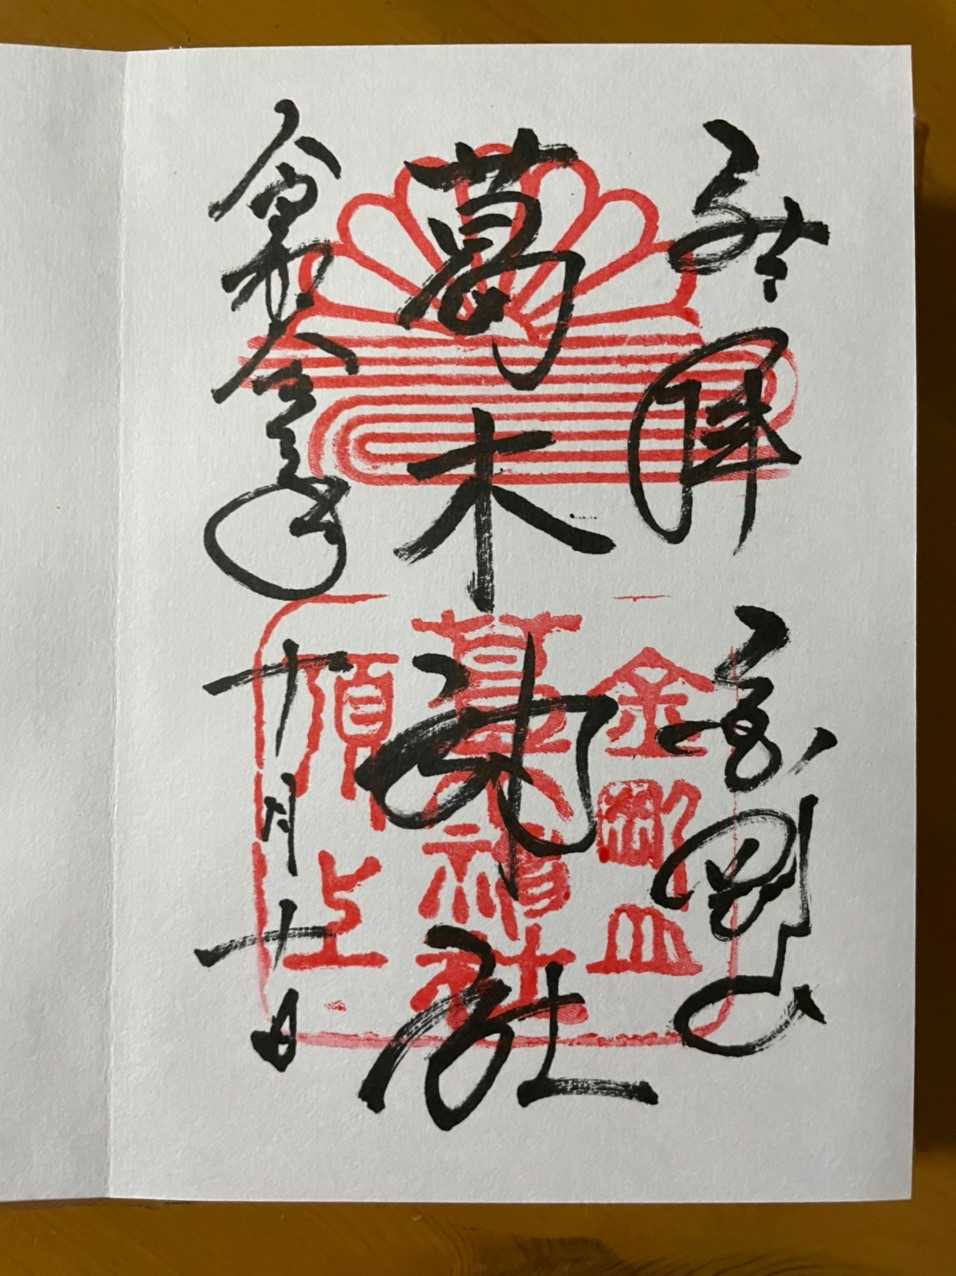 拝 金剛山
葛木神社
令和 年十月十日
金剛山
葛木神社
頂上